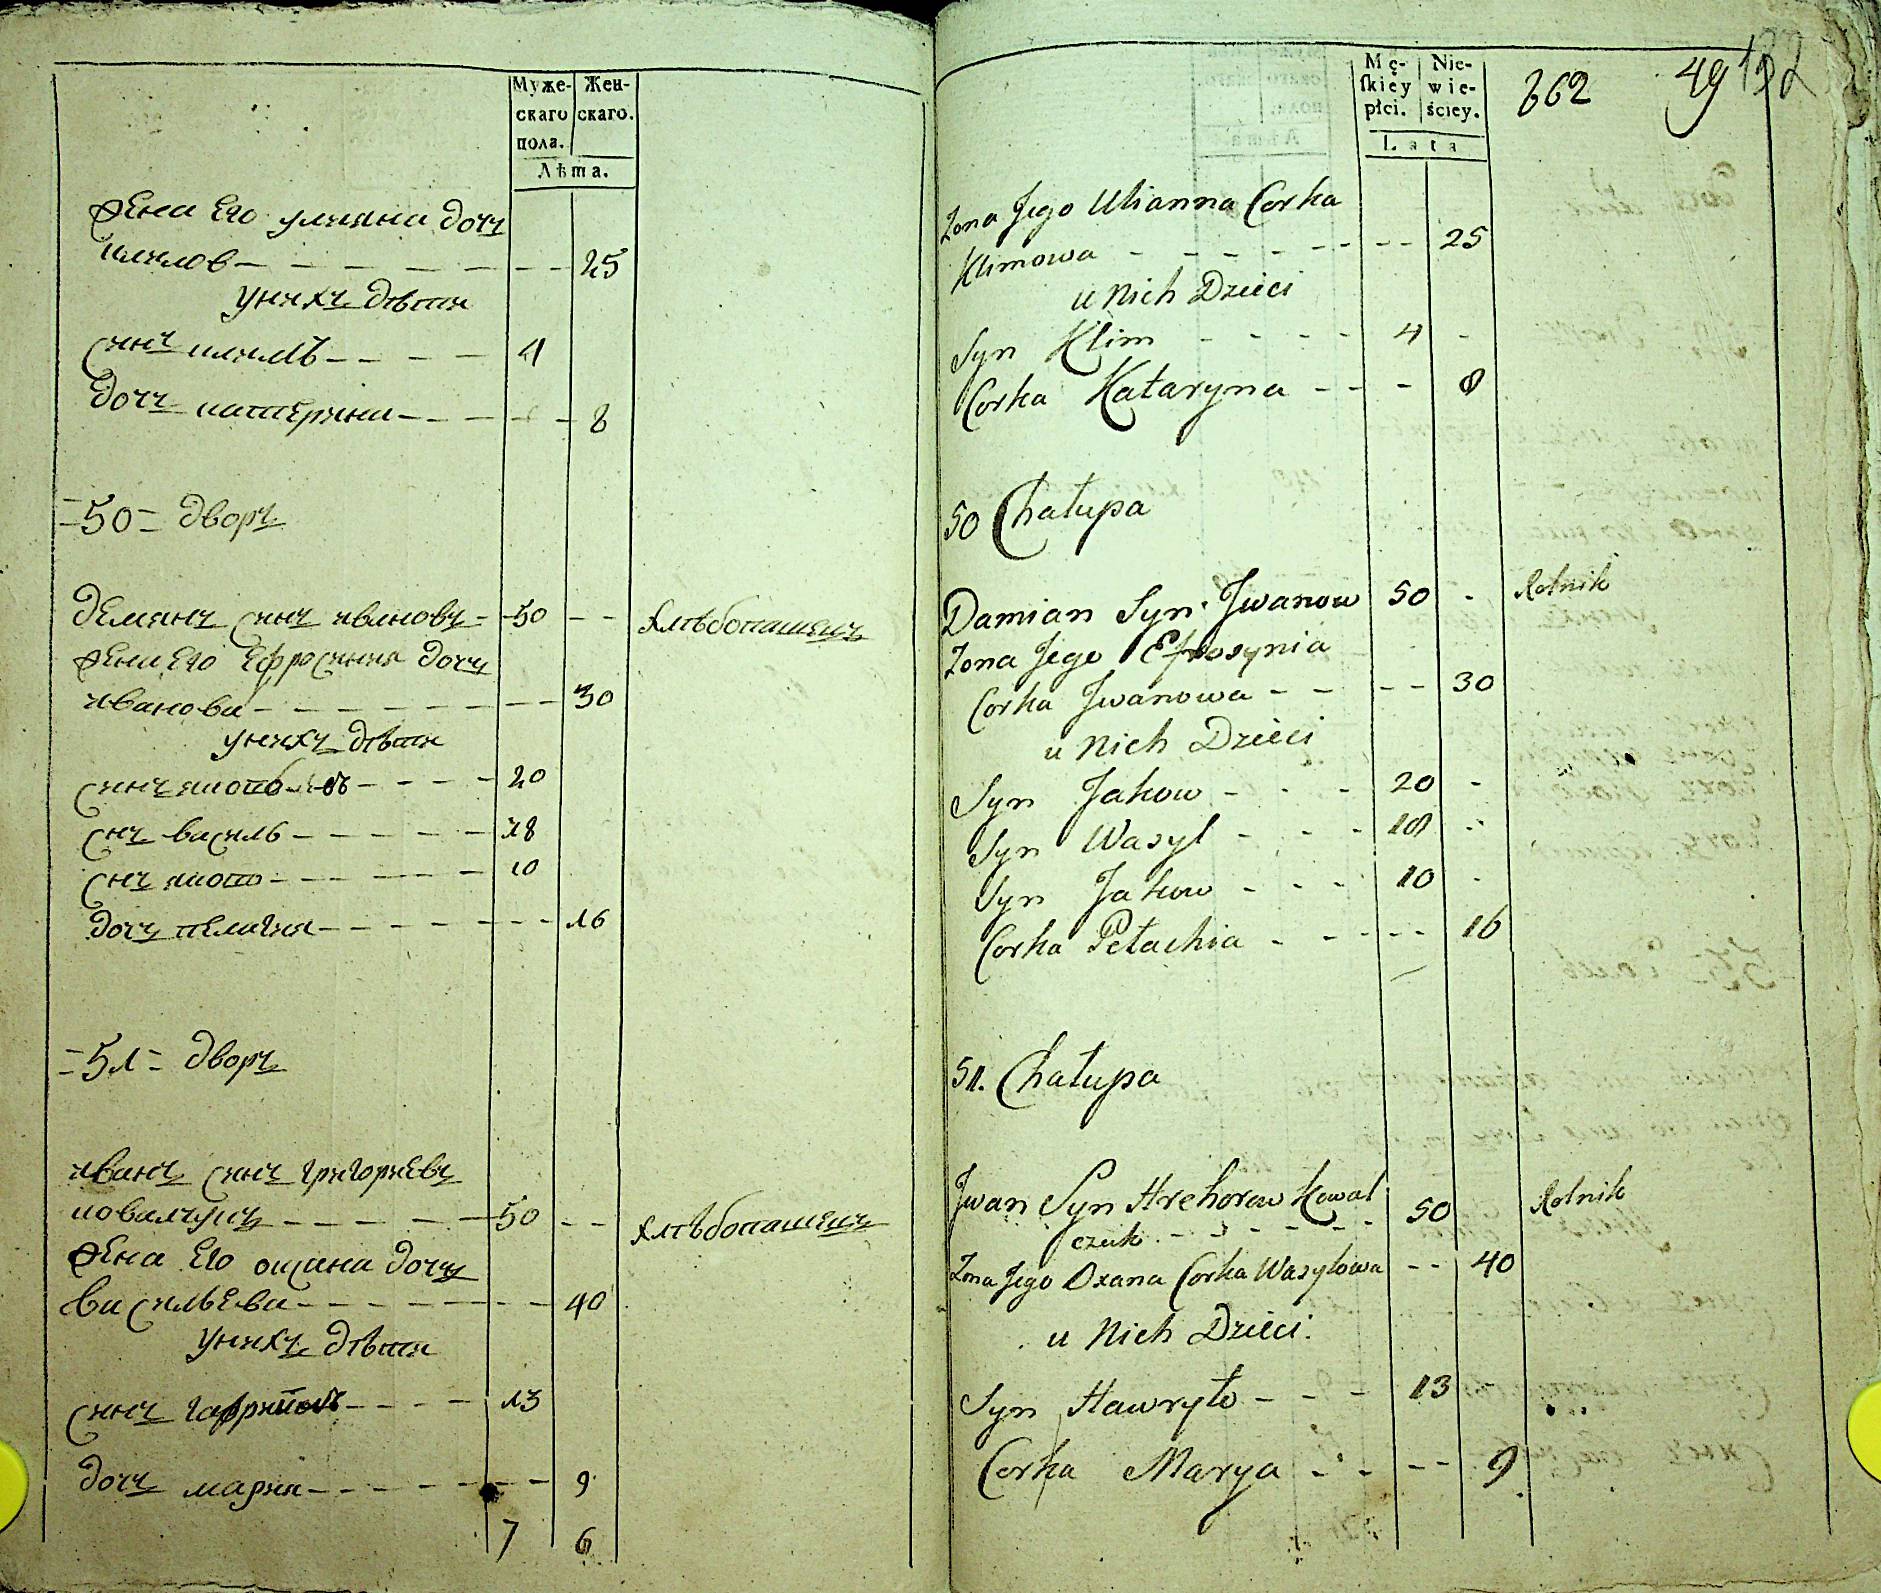 Муже-
скаго
пола.
Жен-
скаго.
Лѣта.
жена Его улияна дочь
климов — — — — — — 25
унихъ дѣти
синъ климъ — — — — 4
дочъ катерина — — — — 8
= 50 = дворъ
демянъ синъ ивановъ - 50 — — хлѣбопашецъ
жена Его Ефросиния дочъ
иванова — — — — — — 30
унихъ дѣти
синъ — — — — 20
синъ василь — — — — — 18
синъ — — — — — 10
дочъ пелагия — — — — — 16
= 51 = дворъ
иванъ синъ григориевъ
ковалчукъ — — — — — 50 — — хлѣбопашецъ
жена Его оксана дочъ
васильева — — — — — — 40
унихъ дѣти
синъ — — — — 13
дочъ мария — — — — — 9
7 6
Mę-
skiey
płci.
Nie-
wie-
ściey.
Lata
362 49 132
Zona Jego Ulianna Corka
Klimowa — — — — — — 25
u Nich Dzieci
Syn Klim - - - - 4 -
Corka Kataryna - - - 8
50 Chałupa
Damian Syn Jwanow 50 - Rolnik
Zona Jego Efrosynia
Corka Jwanowa - - - - 30
u Nich Dzieci
Syn Jakow - - - 20 -
Syn Wasyl - - - 18 -
Syn Jakow - - - 10 -
Corka Pełachia - - - - - 16
51. Chałupa
Jwan Syn Hrehorow Kowal
czuk - - - - - - 50 Rolnik
Zona Jego Oxana Corka Wasylowa - - 40
u Nich Dzieci.
Syn Hawryło - - - 13 -
Corka Marya - - - - 9